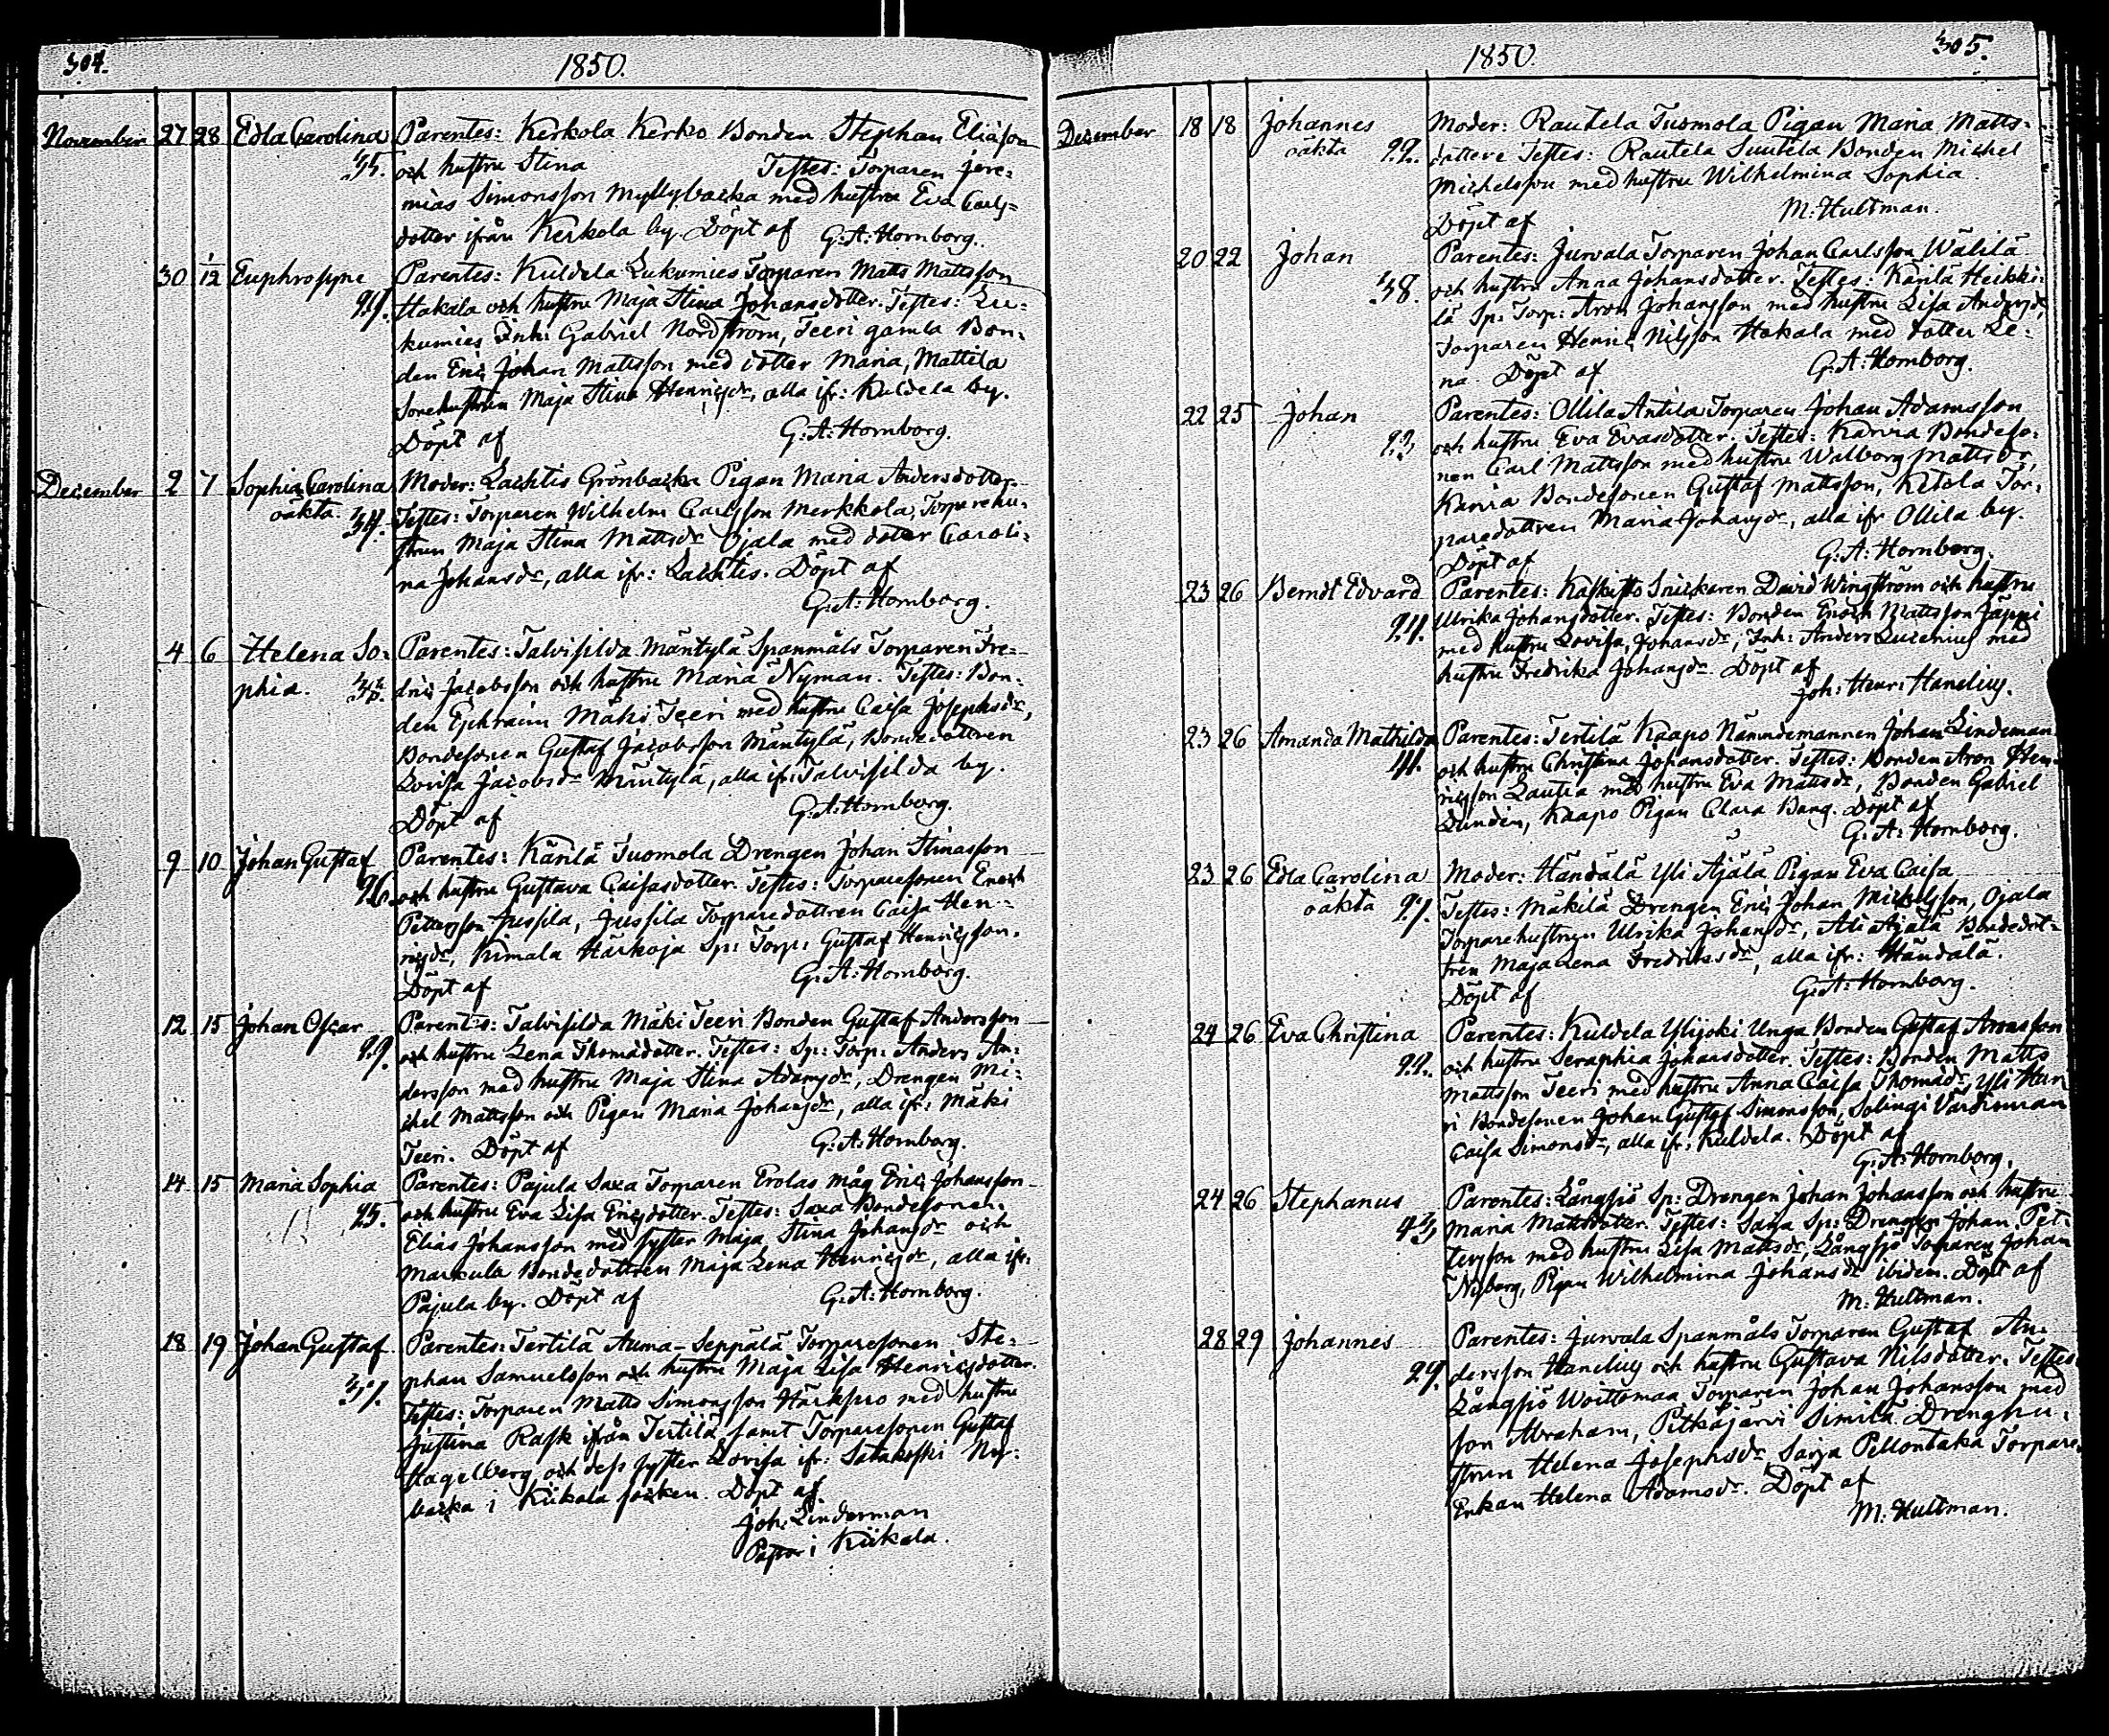 304.
1850.
November 27 28 Edla Carolina Parentes: Kerkola Kerko Bonden Stephan Eliäson
35. och hustru Stina Testes: Torparen Jere=
mias Simonsson Myllybacka med hustru Eva Carls=
dotter ifrån Kerkola by. Döpt af G: A: Hornborg.
30 1/12 Euphrosyne Parentes: Kuldela Lukumies Torparen Matts Mattsson
Hakala och hustru Maja Stina Johansdotter. Testes: Lu=
kumies Inh: Gabriel Nordström, Teeri gamla Bon=
den Eric Johan Mattsson med dotter Maria, Mattila
Sonehustrun Maja Stina Henricsdr, alla ifr: Kuldela by.
Döpt af G: A: Hornborg.
December 2 7 Sophia Carolina Moder: Lachtis Grönbacka Pigan Maria Andersdotter.
oäkta. 34. Testes: Torparen Wilhelm Carlsson Merkkola, Torparehu=
strun Maja Stina Mattsdr Ojala med dotter Caroli=
na Johansdr, alla ifr: Lachtis. Döpt af
G: A: Hornborg.
4 6 Helena So= Parentes: Talvisilda Mäntylä Spanmåls Torparen Fre=
phia. dric Jacobsson och hustru Maria Nyman. Testes: Bon=
den Ephraim Mäki Teeri med hustru Caisa Josephsdr,
Bondesonen Gustaf Jacobsson Mäntylä, Bondedottren
Lovisa Jacobsdr Mäntylä, alla ifr: Talvisilda by.
Döpt af G: A: Hornborg.
9 10 Johan Gustaf Parentes: Kärilä Tuomola Drengen Johan Stinasson
26. och hustru Gustava Caisasdotter. Testes: Torparesonen Enoch
Pettersson Jussila, Jussila Torparedottren Caisa Hen=
ricsdr, Kimala Härkoja Sp: Torp: Gustaf Henricsson.
Döpt af G: A: Hornborg.
12 15 Johan Oscar Parentes: Talvisilda Mäki Teeri Bonden Gustaf Andersson
29. och hustru Lena Thomädotter. Testes: Sp: Torp: Anders An=
dersson med hustru Maja Stina Adamsdr, Drengen Mi=
chel Mattsson och Pigan Maria Johansdr, alla ifr: Mäki
Teeri. Döpt af G: A: Hornborg.
14 15 Maria Sophia Parentes: Pajula Saxa Torparen Erolas måg Eric Johansson
25. och hustru Eva Lisa Ericsdotter. Testes: Saxa Bondesonen
Elias Johansson med syster Maja Stina Johansdr och
Markula Bondedottren Maja Lena Henricsdr, alla ifr:
Pajula by. Döpt af G: A: Hornborg.
18 19 Johan Gustaf Parentes: Tertilä Auma-Seppälä Torparesonen Ste=
phan Samuelsson och hustru Maja Lisa Henricsdotter.
Testes: Torparen Matts Simonsson Härkpro med hustru
Justina Rask ifrån Tertilä, samt Torparesonen Gustaf
Hagelberg och dess syster Lovisa ifr: Satakoski Ny=
backa i Kiikala socken. Döpt af
Joh: Linderman
Pastor i Kiikala.
305.
1850
December 18 18 Johannes Moder: Rautela Tuomola Pigan Maria Matts=
oäkta 22. dotter. Testes: Rautela Suutela Bonden Michel
Michelsson med hustru Wilhelmina Sophia.
Döpt af M: Hultman.
20 22 Johan Parentes: Juvala Torparen Johan Carlsson Wälilä
38. och hustru Anna Johansdotter. Testes: Kärilä Heikki=
lä Sp: Torp: Aron Johansson med hustru Lisa Andersdr,
Torparen Henric Nilsson Hakala med dotter Le=
na. Döpt af G: A: Hornborg.
22 25 Johan Parentes: Ollila Antila Torparen Johan Adamsson
23 och hustru Eva Evasdotter. Testes: Karvia Bondeso=
nen Carl Mattsson med hustru Walborg Mattsdr,
Karvia Bondesonen Gustaf Mattsson, Ketola Tor=
paredottren Maria Johansdr, alla ifr Ollila by.
Döpt af G: A: Hornborg.
23 26 Berndt Edvard Parentes: Kaskisto Snickaren David Wingström och hustru
Ulrika Johansdotter. Testes: Bonden Enoch Mattsson Jäppi
med hustru Lovisa Johansdr, Inh: Anders Lucenius med
hustru Fredrika Johansdr. Döpt af
Joh: Henr: Hanelius.
23 26 Amanda Mathilda Parentes: Tertilä Kaapo Nämndemannen Johan Lindeman
41. och hustru Christina Johansdotter. Testes: Bonden Aron Hen=
ricsson Lautia med hustru Eva Mattsdr, Bonden Gabriel
Lundén, Kaapo Pigan Clara Bang. Döpt af
G: A: Hornborg.
23 26 Edla Carolina Moder: Händälä Yli Äjälä Pigan Eva Caisa
oäkta Testes: Mäkilä Drengen Eric Johan Michelsson, Ojala
Torparehustrun Ulrika Johansdr, Ali Äjälä Bondedot=
tren Maja Lena Fredriksdr, alla ifr: Händälä.
Döpt af G: A: Hornborg.
24 26 Eva Christina Parentes: Kuldela Ylijoki Unga Bonden Gustaf Aronsson
22. och hustru Seraphia Johansdotter. Testes: Bonden Matts
Mattsson Teeri med hustru Anna Caisa Thomädr, Yli Hon
ri Bondesonen Johan Gustaf Simonsson, Solingi Värdinnan
Caisa Simonsdr, alla ifr: Kuldela. Döpt af
G: A: Hornborg.
24 26 Stephanus Parentes: Långsjö Sp: Drengen Johan Johansson och hustru
43 Maria Mattsdotter. Testes: Särja Sp: Drengen Johan Pet=
tersson med hustru Lisa Mattsdr, Långsjö Torparen Johan
Nyberg, Pigan Wilhelmina Johansdr ibidem. Döpt af
M: Hultman.
28 29 Johannes Parentes: Juvala Spanmåls Torparen Gustaf An=
29. dersson Hanelius och hustru Gustava Nilsdotter. Testes:
Långsjö Woittomaa Torparen Johan Johansson med
son Abraham, Pitkäjärvi Similä Drenghu=
strun Helena Josephsdr Särja Pellontaka Torpare
Enkan Helena Adamsdr. Döpt af
M: Hultman.